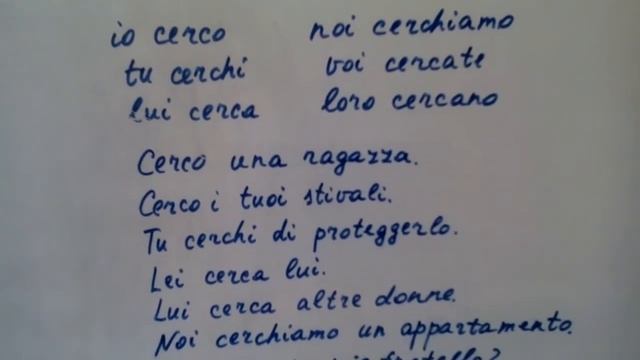 io cerco noi cerchiamo
tu cerchi voi cercate
lui cerca loro cercano
Cerco una ragazza.
Cerco i tuoi stivali.
Tu cerchi di proteggerlo.
Lei cerca lui.
Lui cerca altre donne.
Noi cerchiamo un appartamento.
fratello?